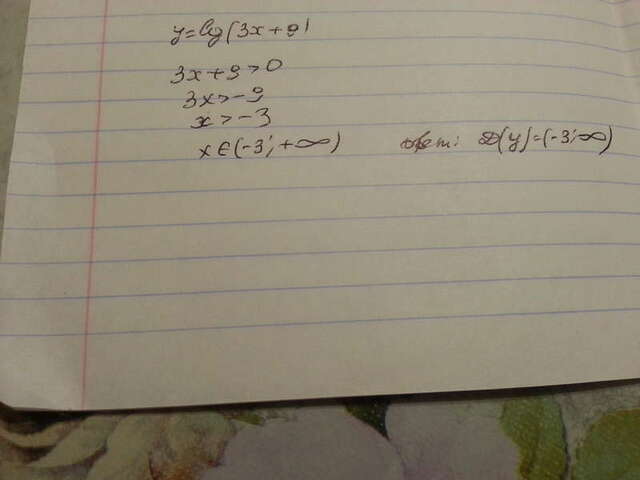 y=lg(3x+9)
3x+9>0
3x>-9
x>-3
x∈(-3;+∞) Ответ: D(y)=(-3;∞)